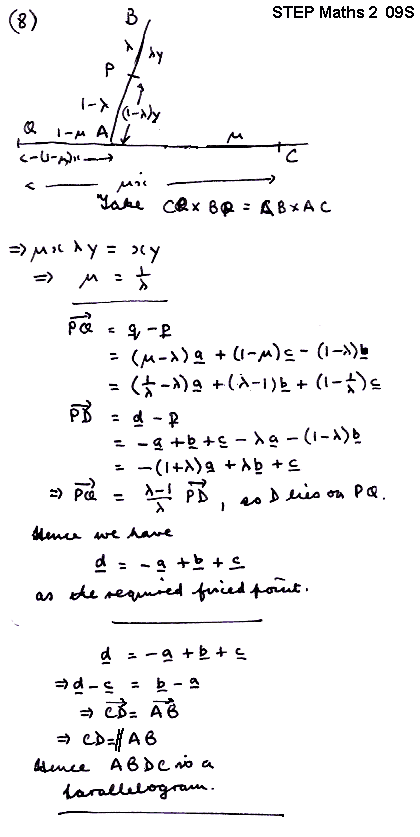 STEP Maths 2 09S
(8)
B
λ
λy
P
1-λ
(1-λ)y
Q
1-μ
A
μ
C
<-(1-μ)x->
< μx >
Take CQ × BP = AB × AC
⇒ μx λy = xy
⇒ μ = 1/λ
PQ→ = q - p
= (μ-λ)a + (1-μ)c - (1-λ)b
= (1/λ - λ)a + (λ-1)b + (1-1/λ)c
PD→ = d - p
= -a + b + c - λa - (1-λ)b
= -(1+λ)a + λb + c
⇒ PQ→ = (λ-1)/λ PD→, so D lies on PQ.
Hence we have
d = -a + b + c
as the required fixed point.
d = -a + b + c
⇒ d - c = b - a
⇒ CD→ = AB→
⇒ CD=∥AB
Hence ABDC is a
parallelogram.